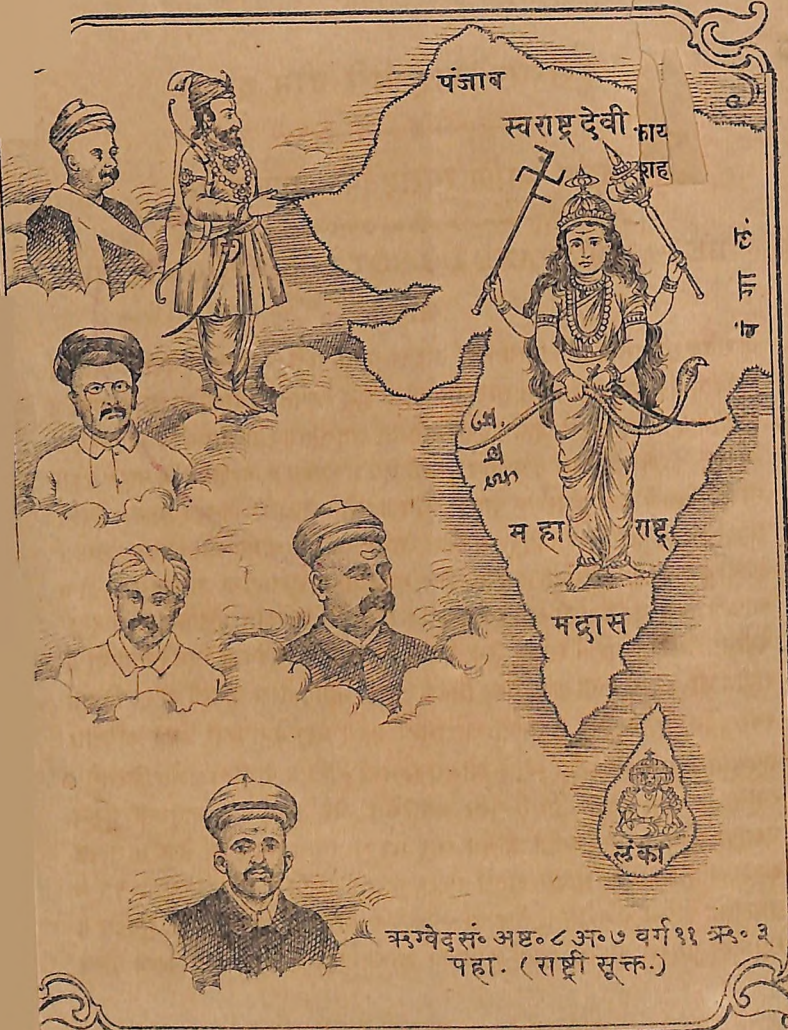 पंजाब
स्वराष्ट्र देवी
बंगाल.
महाराष्ट्र
मद्रास
लंका
ऋग्वेदसं० अष्ट० ८ अ० ७ वर्ग ११ ऋ० ३
पहा. (राष्ट्री सूक्त.)